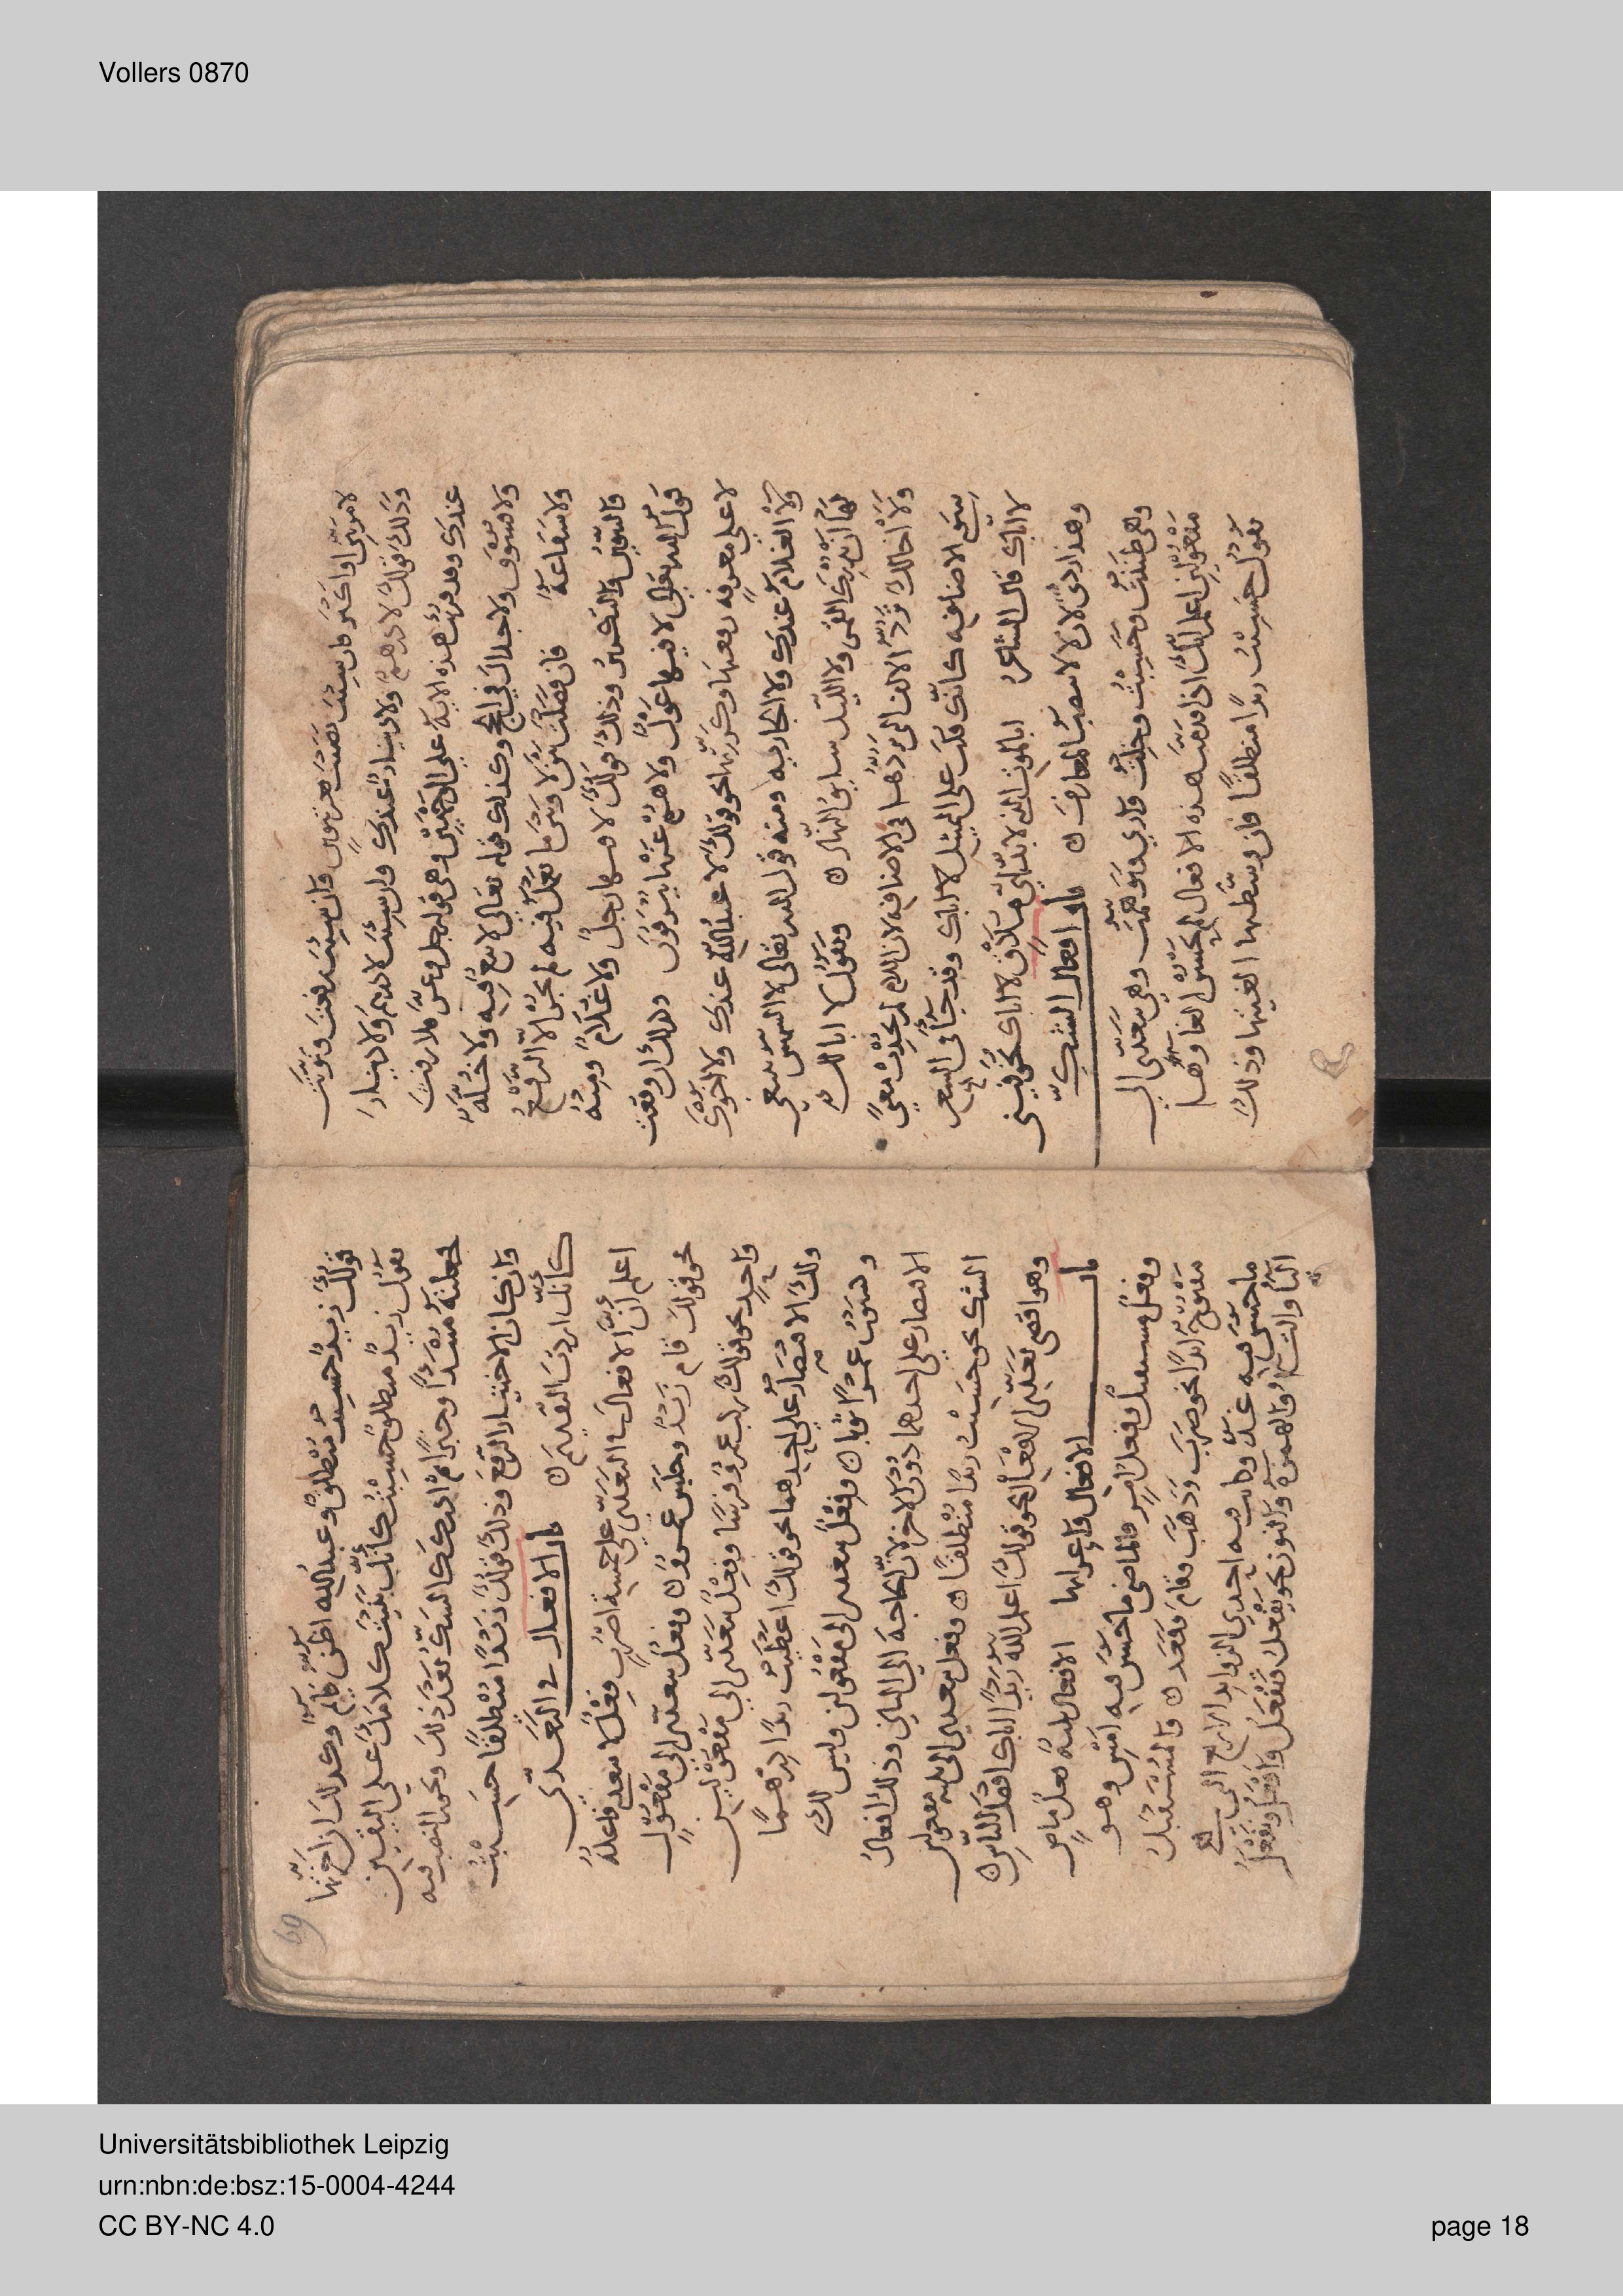 Vollers 0870
لامرتين او اكثر فان شئت نصبت بغير تنوين وان شئت رفعت ونونت
وذلك قولك لا درهم ولا دينار عندك وان شئت لا درهم ولا دينار
عندك وقد قرئت هذه الاية على الوجهين وهي قوله جل وعز فلا رفث
ولا فسوق ولا جدال في الحج وكذلك قوله تعالى لا بيع فيه ولا خلة
ولا شفاعة فان فصلت بين لا وبين ما تعمل فيه لم يجز الا الرفع
والتنوين والتكرير وذلك قولك لا فيها رجل ولا غلام ومنه
قول الله تعالى لا فيها غول ولا هم عنها ينزفون وذلك ان وقعت
لا على معرفة رفعتها وكررتها نحو قولك لا عبد الله عندك ولا اخوك
ولا الغلام عندك ولا الجارية ومنه قول الله تعالى لا الشمس ينبغي
لها ان تدرك القمر ولا الليل سابق النهار وتقول لا ابا لك
ولا اخا لك ترد الالف التي تردها في الاضافة لان اللام لم تحدث معنى
سوى الاضافة كانك قلت على التمثيل لا اباك وقد جا في الشعر
لا اباك قال الشاعر ابالموت الذي لا بد اني ملاق لا اباك تخوفيني
وهذا ردي لان لا لا تنصب المعارف باب افعال الشك
وهي ظننت وحسبت وخلت واري وتوهمت وهي تتعدى الى
مفعولين اعلم انك اذا قدمت هذه الافعال لم يحسن الغاوها
تقول حسبت زيدا منطلقا فان وسطتها الغيتها وذلك
69
قولك زيد حسبت منطلق وعبد الله اظن قايم وكذلك اذا اخرتها
تقول زيد منطلق حسبت كانك بنيت كلامك على اليقين
جعلته مبتدا وخبرا ثم ادركك الشك بعد ذلك ويجوز النصب فيه
وان كان الاختيار الرفع وذلك قولك زيدا منطلقا حسبت
كانك اردت التقديم باب الافعال في التعدي
اعلم ان الافعال في التعدي على خمسة اضرب فعل لا يتعدى فاعله
نحو قولك قام زيد وجلس عمرو وفعل يتعدى الى مفعول
واحد نحو قولك ركب عمرو فرسا وفعل يتعدى الى مفعولين
ولك الاقتصار على احدهما نحو قولك اعطيت زيدا درهما
وكسوت عمرا ثوبا وفعل يتعدى الى مفعولين وليس لك
الاقتصار على احدهما دون الاخر لان الحاجة الى الثاني وذلك افعال
الشك نحو حسبت زيدا منطلقا وفعل يتعدى الى ثلثة مفعولين
وهو اقصى تعدي الفعل نحو قولك اعلم الله زيدا اباك افضل الناس
باب الافعال واعرابها الافعال ثلثة فعل ماض
وفعل مستقبل وفعل امر فالماضي ما حسن فيه امس وهو
مفتوح ابدا نحو ضرب وذهب وقام وقعد والمستقبل
ما حسن فيه غد وكانت فيه احدى الزوايد الاربع التي هي
اليا والتا والهمزة والنون نحو يفعل وتفعل وافعل ونفعل
Universitätsbibliothek Leipzig
urn:nbn:de:bsz:15-0004-4244
CC BY-NC 4.0
page 18